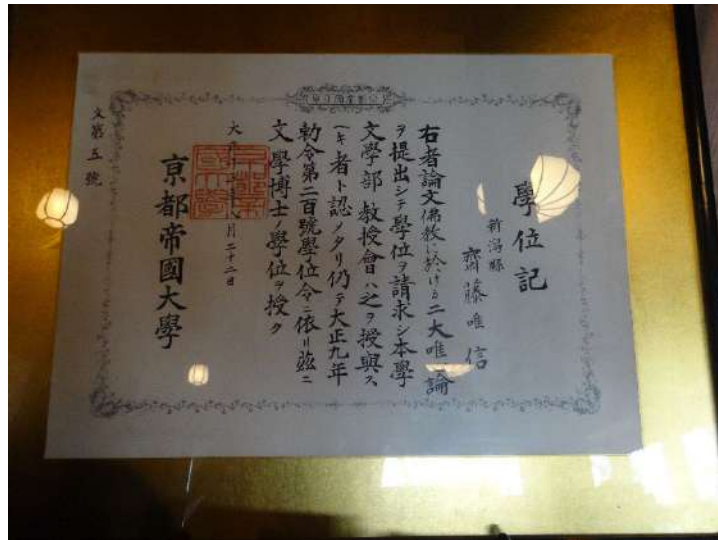 學位記
新潟縣
齋藤唯信
右者論文佛教に於ける二大唯心論
ヲ提出シテ學位ヲ請求シ本學
文學部教授會ハ之ヲ授與ス
ヘキ者ト認メタリ仍テ大正九年
勅令第二百號學位令ニ依リ茲ニ
文學博士ノ學位ヲ授ク
大正 月二十二日
京都帝國大學
文第五號